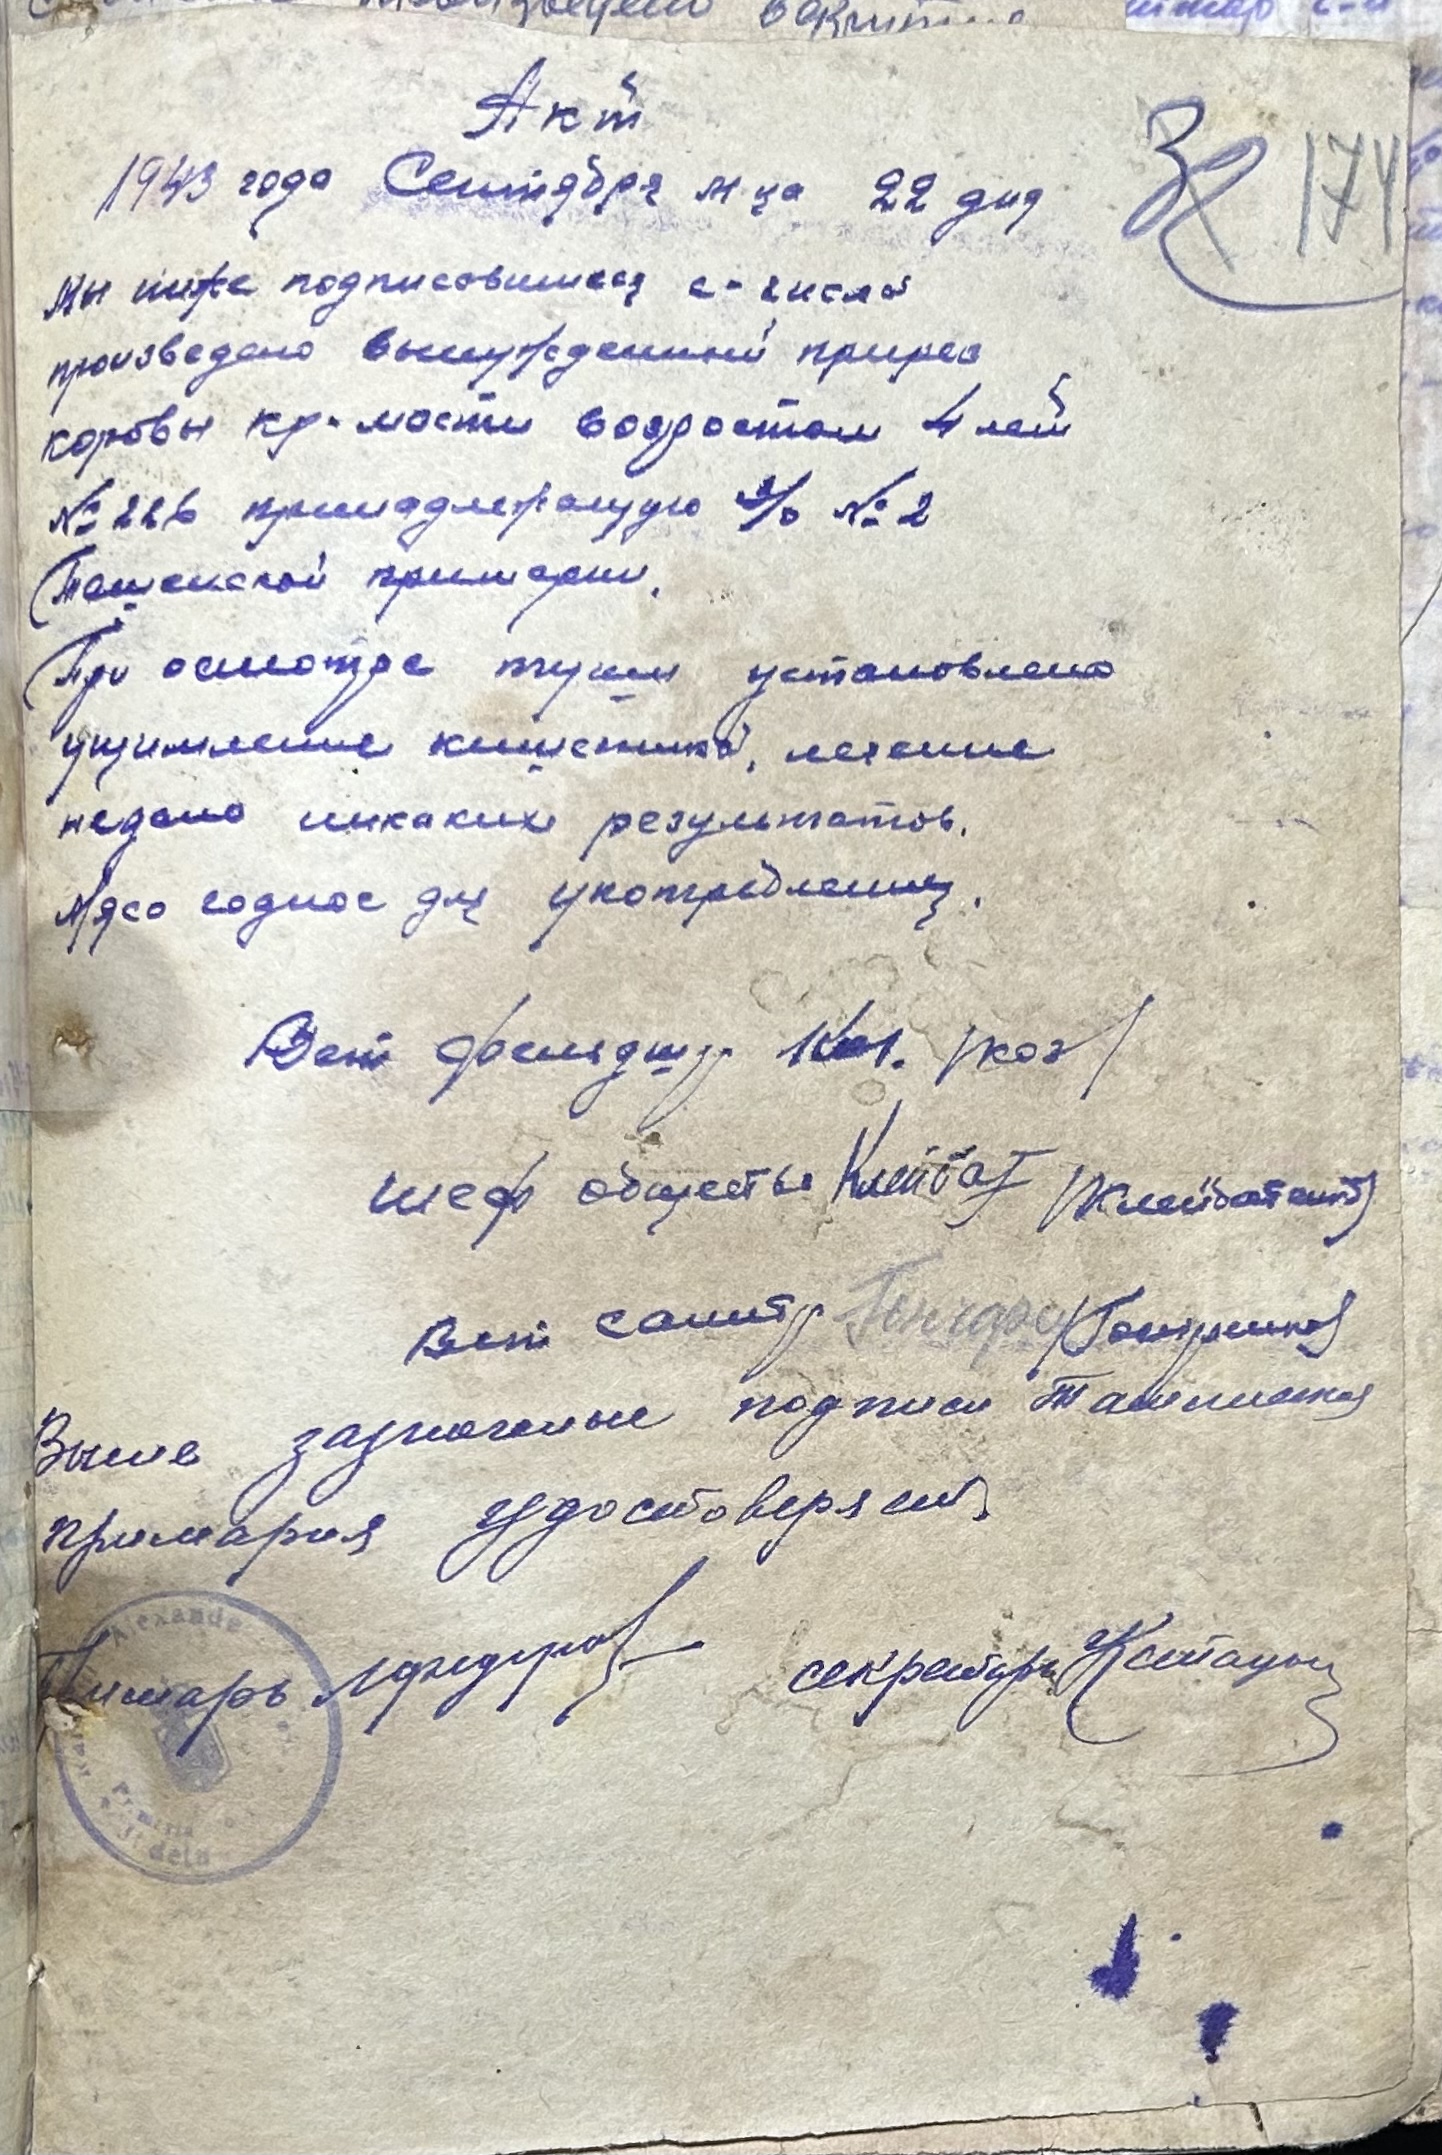 Акт
1943 года Сентября м ца 22 дня
174
Мы ниже подписовшиеся с-числа
произведено вынужденный прирез
коровы кр-масти возрастом 4 лет
№ 226 принадлежащую с/о № 2
Ташенской примарии.
При осмотре туши установлено
ущимление кишечника, лечение
недало никаких результатов.
Мясо годное для употребления.
Вет фельдшер /коз/
Шеф общества /Клейбатенко/
Вет санитр Гончаре /Гончаренко/
Выше зазначеные подписи Ташинская
примария удостоверяет
Примарь секретарь
Alexande
Primaria